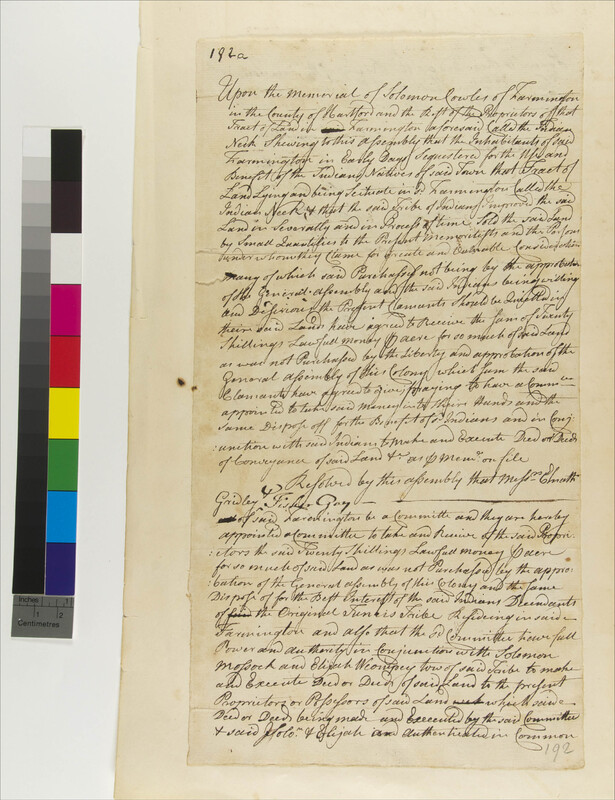 192a
Upon the Memorial of Solomon Cowles of Farmington
in the County of Hartford and the Rest of the Proprietors of that
Tract of Land in Farmington aforesaid Called the Indian
Neck Shewing to this Assembly that the Inhabitants of said
Farmington in Early Days Sequestered for the Use and
Benefit of the Indians Natives of said Town that Tract of
Land Lying and being Scituate in sd Farmington Called the
Indian Neck & that the said Tribe of Indians Improved the said
Land in Severalty and in Process of time Sold the said Land
by Small Quantities to the Present Memorilists and the Persons
under whom they Clame for Create and Valuable Consideration
many of which said Purchases not being by the approbation
of the General assembly and the said Indians being willing
and Desirious the Present Clamants should be Quieted in
their said Lands have agreed to Receive the Sum of Twenty
Shillings Lawfull money ⅌ acre for so much of said Land
as was not Purchassed by the Liberty and approbation of the
General assembly of this Colony which sum the said
Clamants have agreed to give; praying to have a Comm
appointed to take said Money into their Hands and the
same Dispose off for the Benefit of sd Indians and in Conj
:unction with said Indians to make and Execute Deed or Deeds
of Conveyance of said Land &c as ⅌ Meml on file
Resolved by this assembly that Messrs Elnath
Gridley & Fisher Guy
of said Farmington be a Committe and they are hereby
appointed a Committee to take and Receive of the said Propri-
:etors the said Twenty Shillings Lawfull money ⅌ acre
for so much of said Land as was not Purchassed by the appro-
:bation of the General assembly of this Colony and the same
Dispose of for the Best Interest of the said Indians Decendants
of the Original Tunxis Tribe Resideing in said
Farmington and also that the sd Committee have full
Power and authority in Conjunction with Solomon
Mossock and Elijah Wimpey tow of said Tribe to make
and Execute Deed or Deeds of said Land to the present
Proprietors or Possessors of said Land which said
Deed or Deeds being made and Executed by the said Committee
& said Solon & Elijah and authenticated in Common
192
Inches
1
2
Centimetres